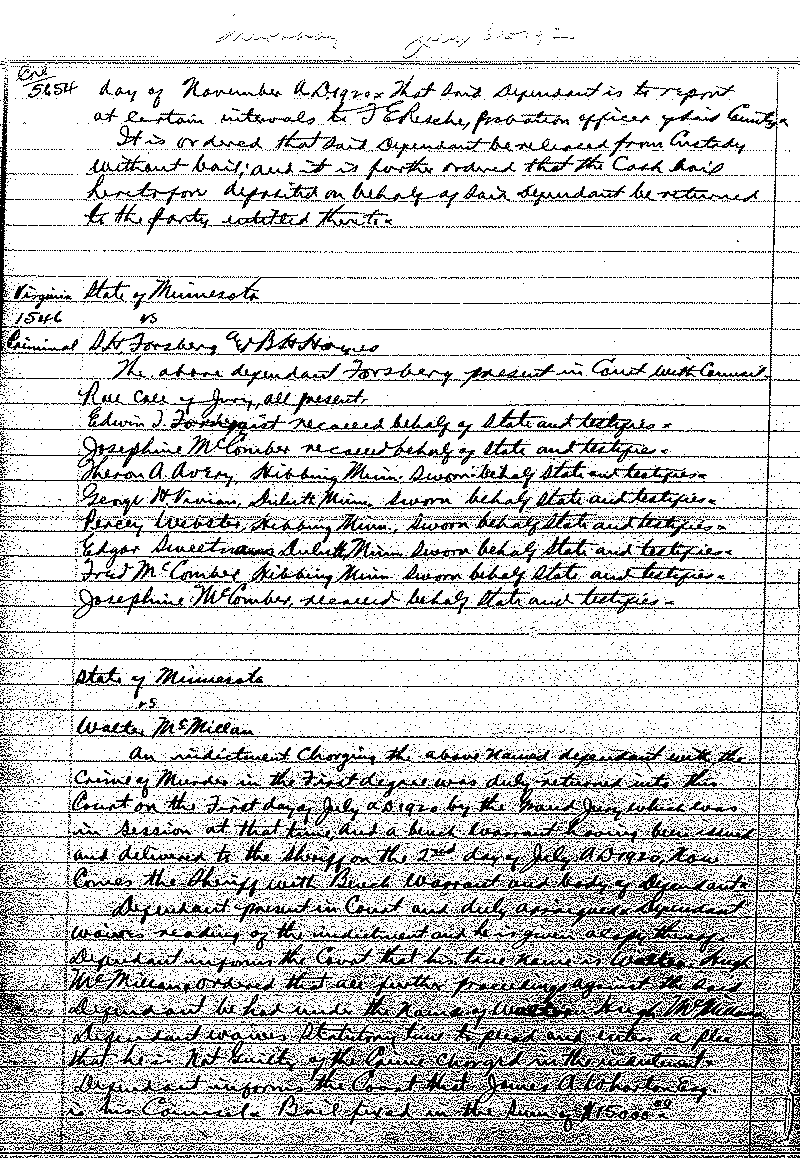 July 1920
Cra
5654 day of November A.D. 1920. That said Defendant is to report
at certain intervals to F E Resche, probation officer of said County.
It is ordered that said Defendant be released from Custody
without bail; and it is further ordered that the Cash bail
heretofore deposited on behalf of said Defendant be returned
to the party entitled thereto.
Virginia State of Minnesota
1546 vs
Criminal D.H. Forsberg & B H Haynes
The above defendant Forsberg present in Court with Counsel.
Role call of Jury, all present.
Edwin T. recalled behalf of State and testifies.
Josephine McComber recalled behalf of State and testifies.
Theron A. Avery, Hibbing Minn. sworn behalf State and testifies.
George H Vivian, Duluth Minn. sworn behalf State and testifies.
Percey Webster, Hibbing Minn. sworn behalf State and testifies.
Edgar Duluth, Minn. sworn behalf State and testifies.
Fred McComber, Hibbing Minn sworn behalf State and testifies.
Josephine McComber, recalled behalf State and testifies.
State of Minnesota
vs
Walter McMillan
An indictment Charging the above named defendant with the
Crime of Murder in the First degree was duly returned into this
Court on the First day of July A.D. 1920 by the Grand Jury which was
in session at that time, and a bench warrant having been issued
and delivered to the Sheriff on the 2nd day of July A.D. 1920, Now
Comes the Sheriff with Bench Warrant and body of Defendant.
Defendant present in Court and duly arraigned. Defendant
waives reading of the indictment and he is given a copy thereof.
Defendant informs the Court that his true name is Hugh
McMillan, ordered that all further proceedings against the said
Defendant be had under the name of Hugh McMillan
Defendant waives Statutory time to plead and enters a plea
that he is Not Guilty of the Crime charged in the indictment.
Defendant informs the Court that James A Wharton Esq
is his Counsel. Bail fixed in the sum of $15000.00